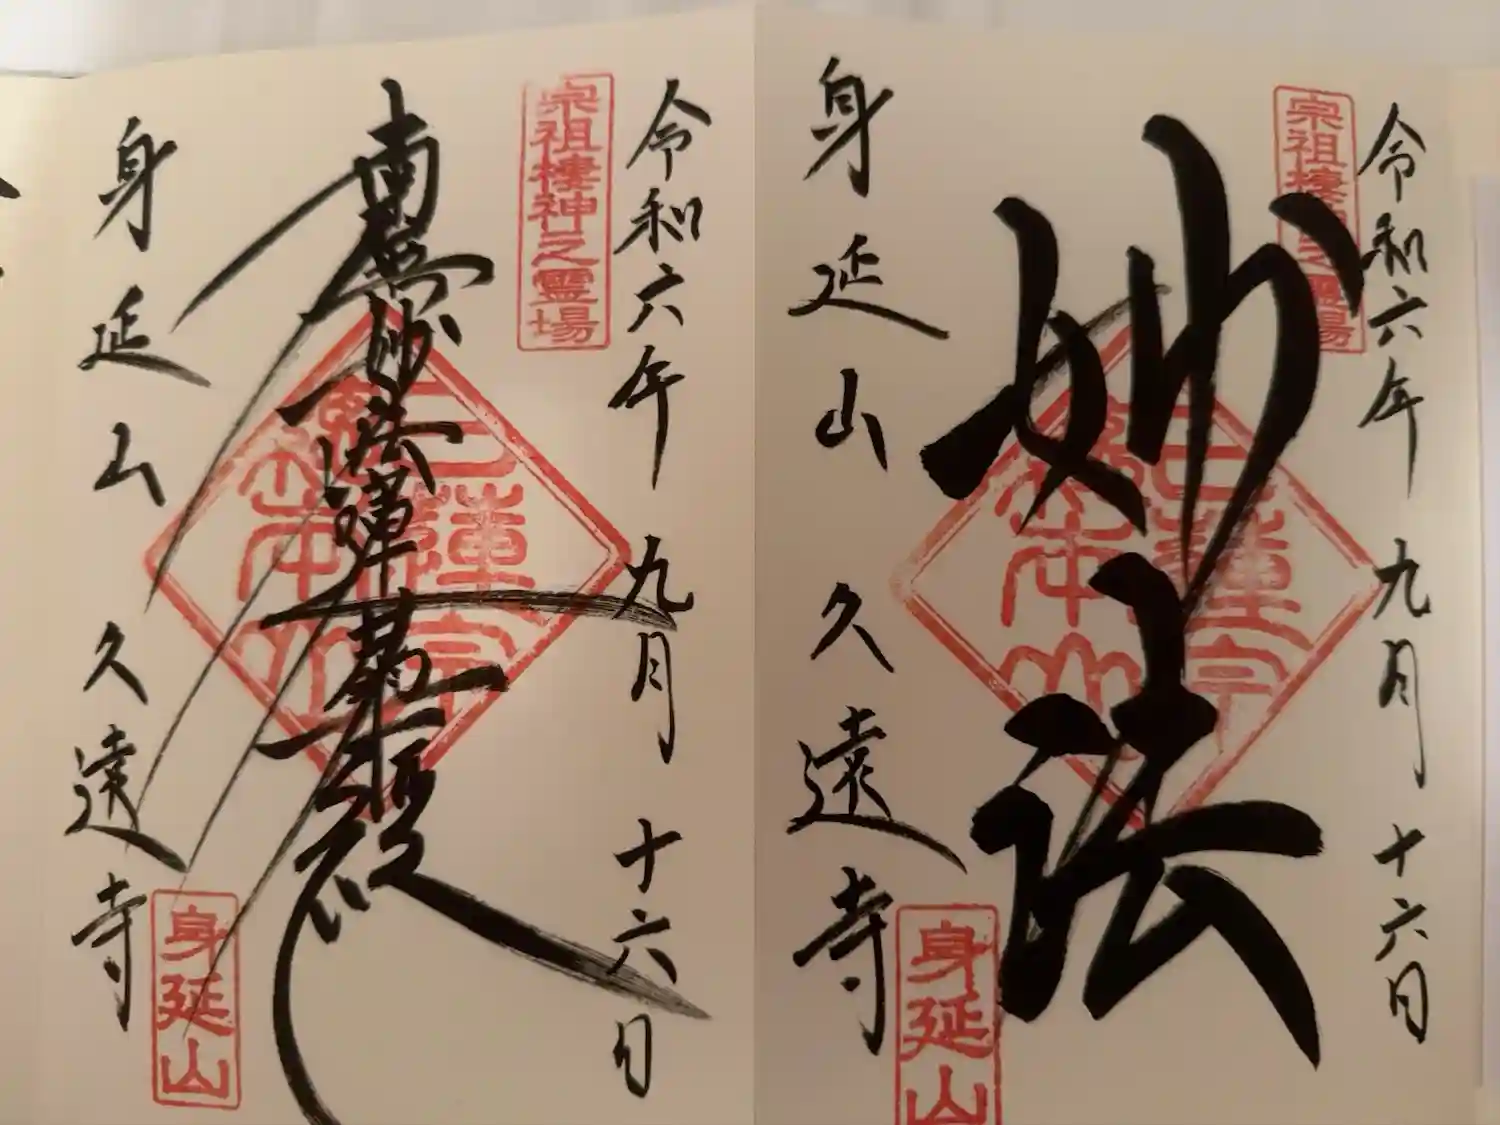 令和六年 九月 十六日
宗祖棲神之霊場
南無妙法蓮華経
日蓮宗
総本山
身延山 久遠寺
身延山
令和六年 九月 十六日
宗祖棲神之霊場
妙法
日蓮宗
総本山
身延山 久遠寺
身延山